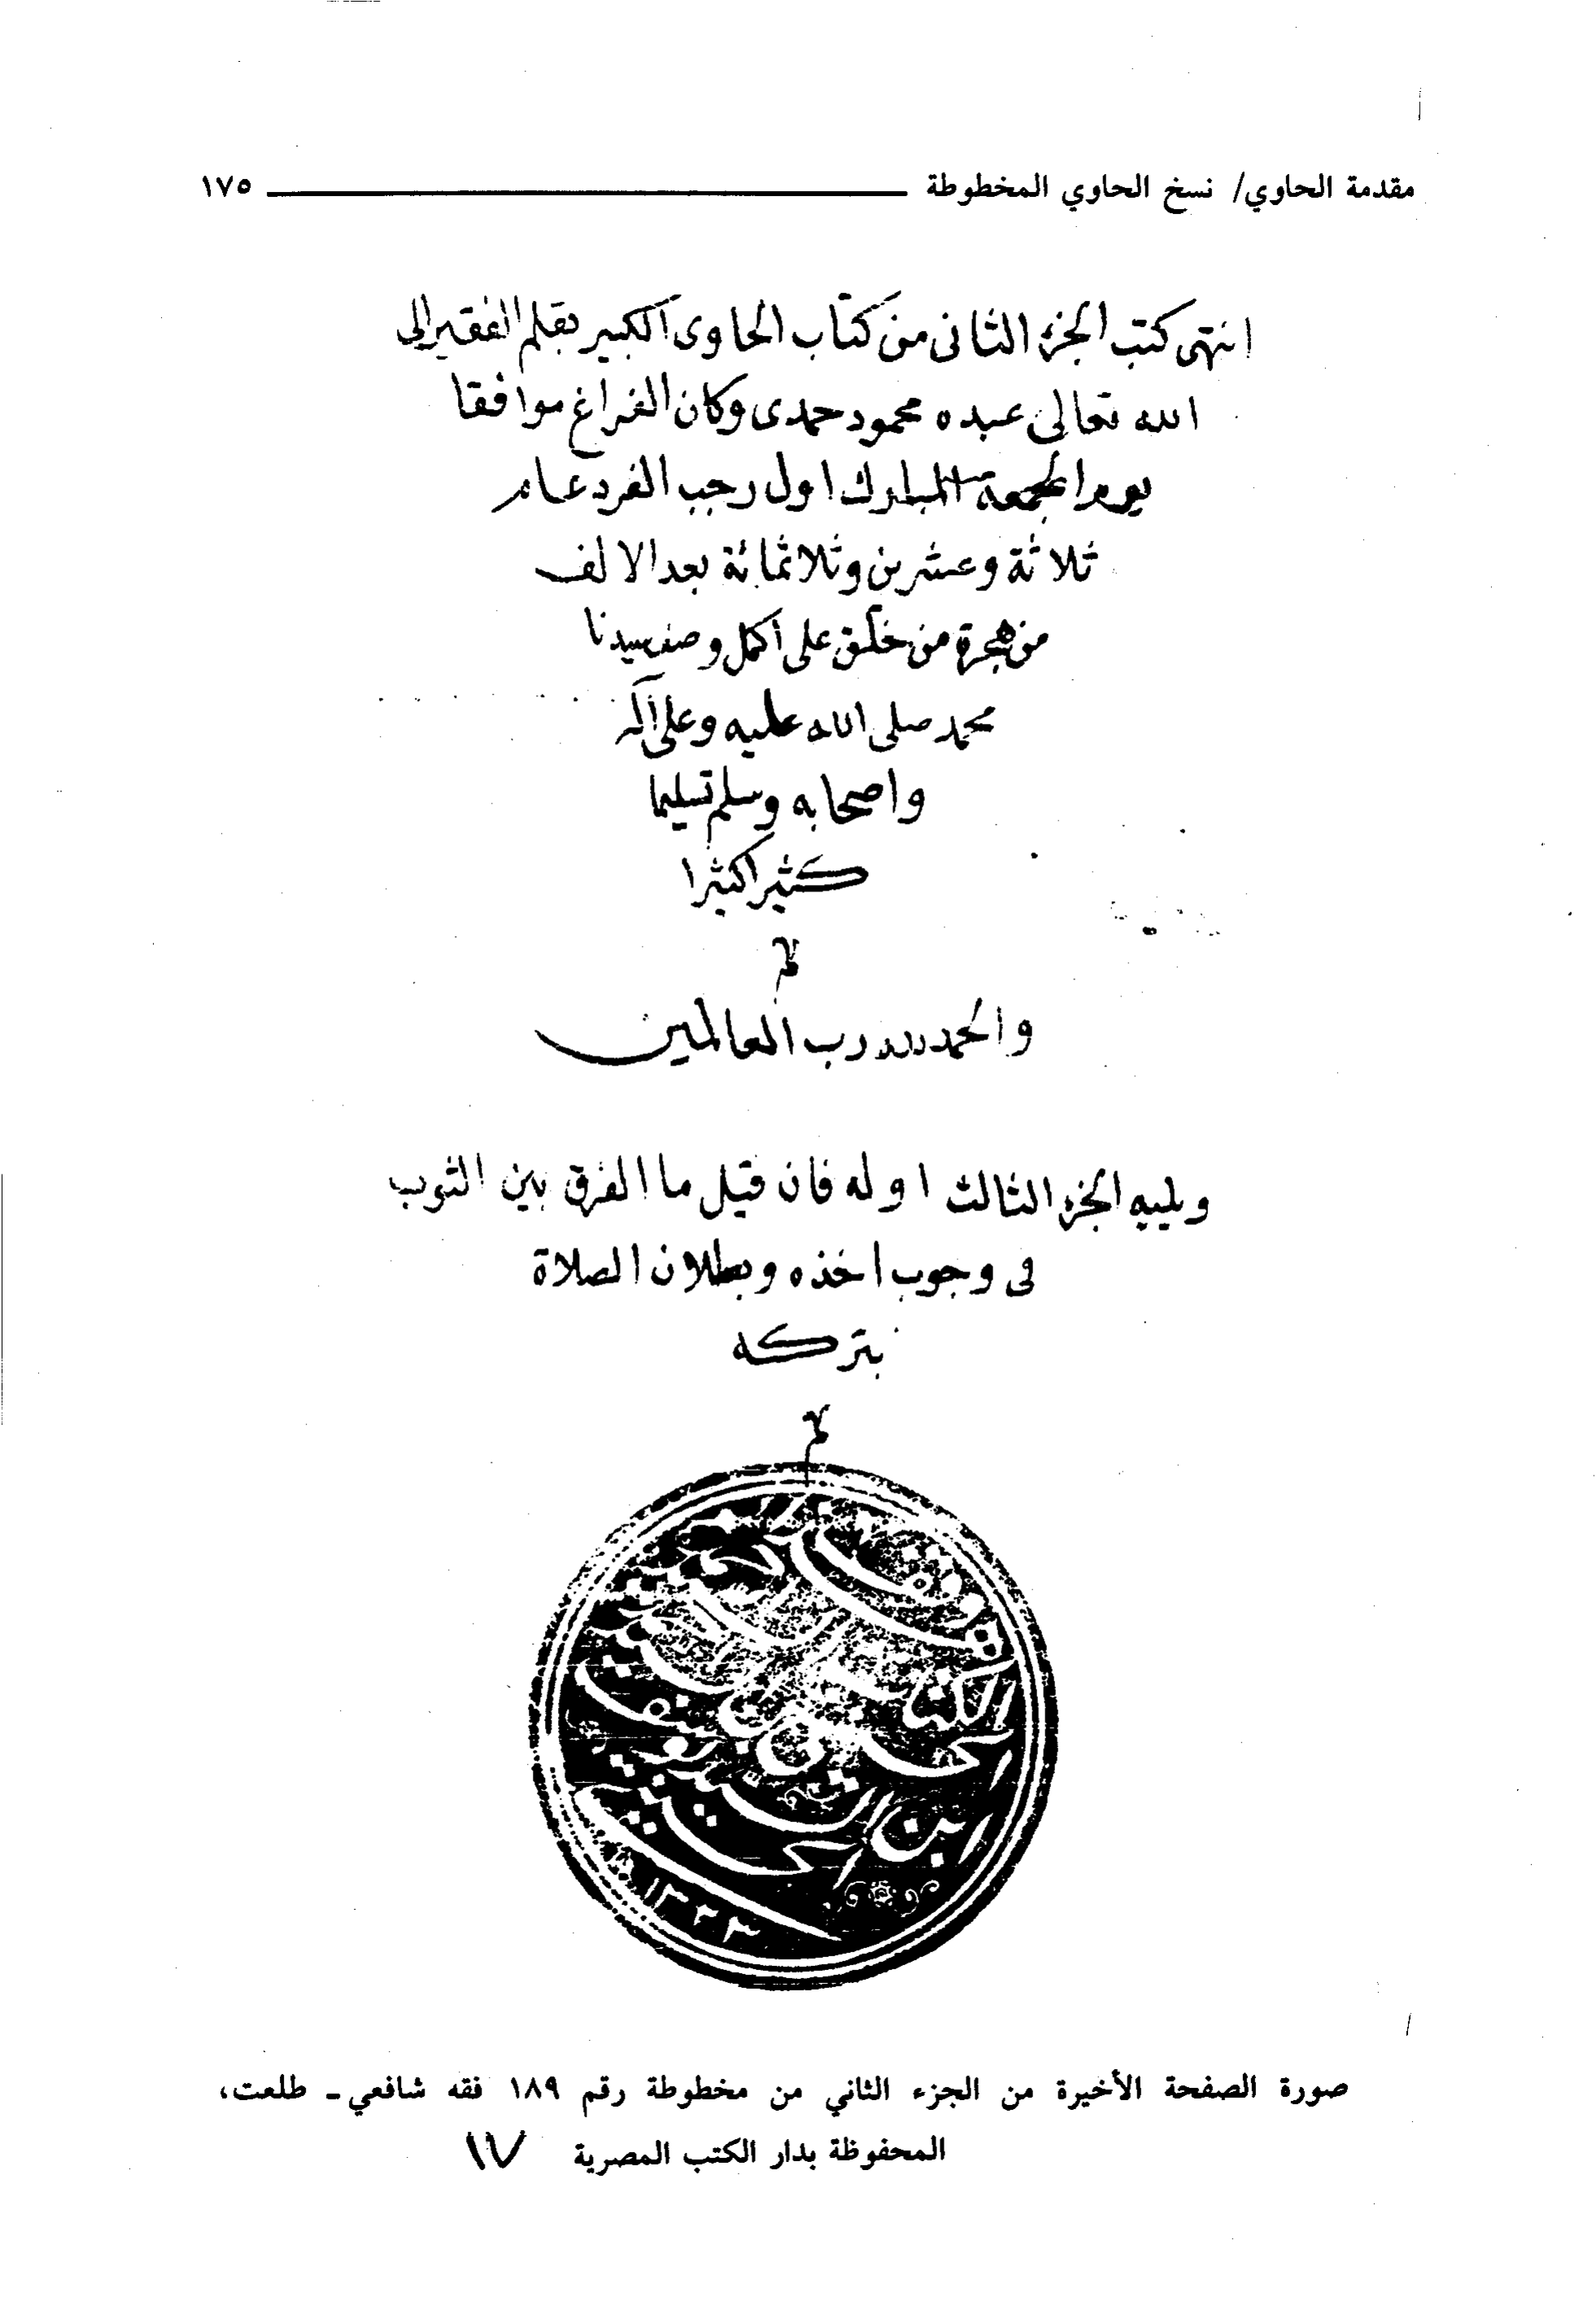 مقدمة الحاوي/ نسخ الحاوي المخطوطة ١٧٥
انتهى كتب الجزء الثانى من كتاب الحاوى الكبير بقلم الفقير الى
الله تعالى عبده محمود حمدى وكان الفراغ موافقا
يوم الجمعة المبارك اول رجب الفرد عام
ثلاثة وعشرين وثلاثمائة بعد الالف
من هجرة من خلق على اكمل وصف سيدنا
محمد صلى الله عليه وعلى آله
واصحابه وسلم تسليما
كثيرا كثيرا
والحمد لله رب العالمين
ويليه الجزء الثالث اوله فان قيل ما الفرق بين الثوب
فى وجوب اخذه وبطلان الصلاة
بتركه
١٣٢٣
صورة الصفحة الأخيرة من الجزء الثاني من مخطوطة رقم ١٨٩ فقه شافعي - طلعت،
المحفوظة بدار الكتب المصرية ١٧